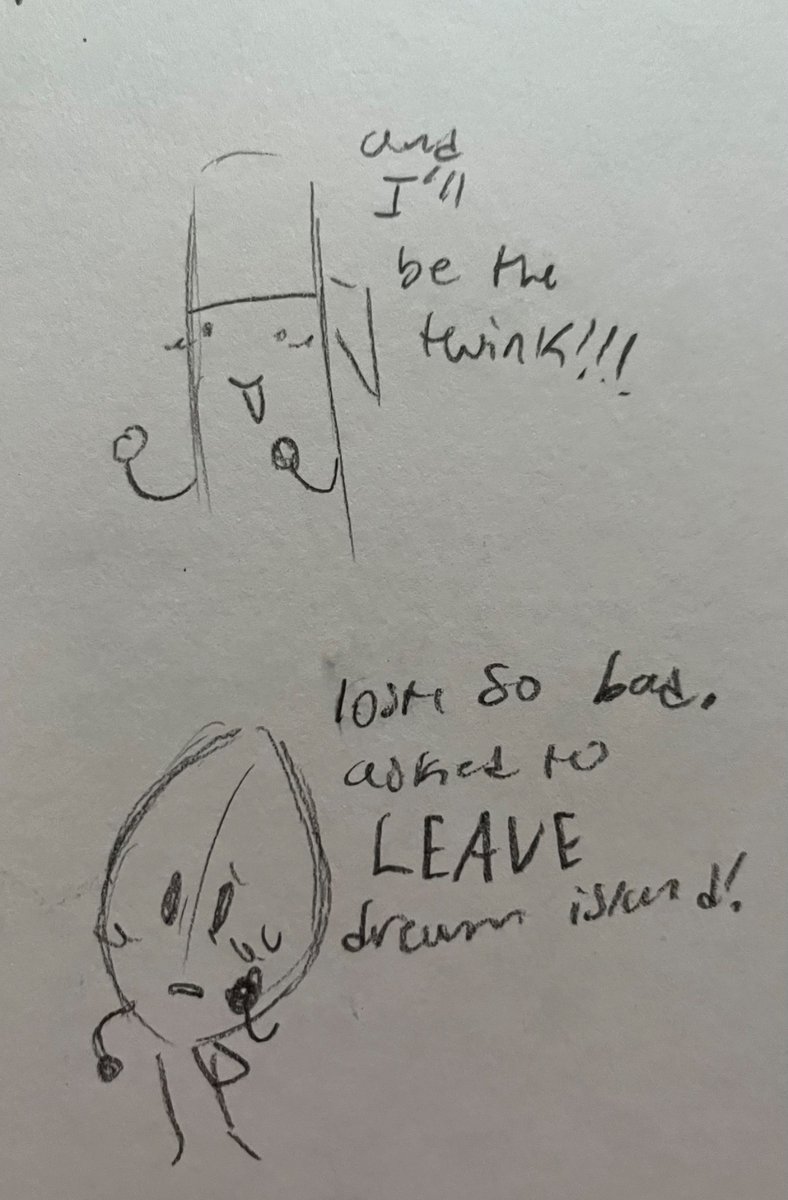 and
I'll
be the
twink!!!
so bad.
asked to
LEAVE
dream island!